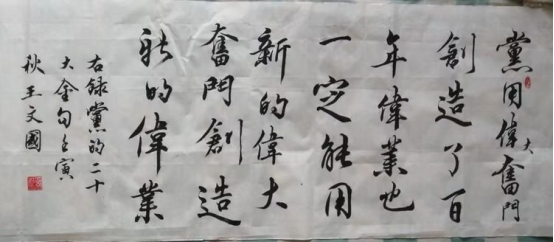 黨用偉大奮鬥
創造了百
年偉業也
一定能用
新的偉大
奮鬥創造
新的偉業
右録黨的二十
大金句壬寅
秋王文國